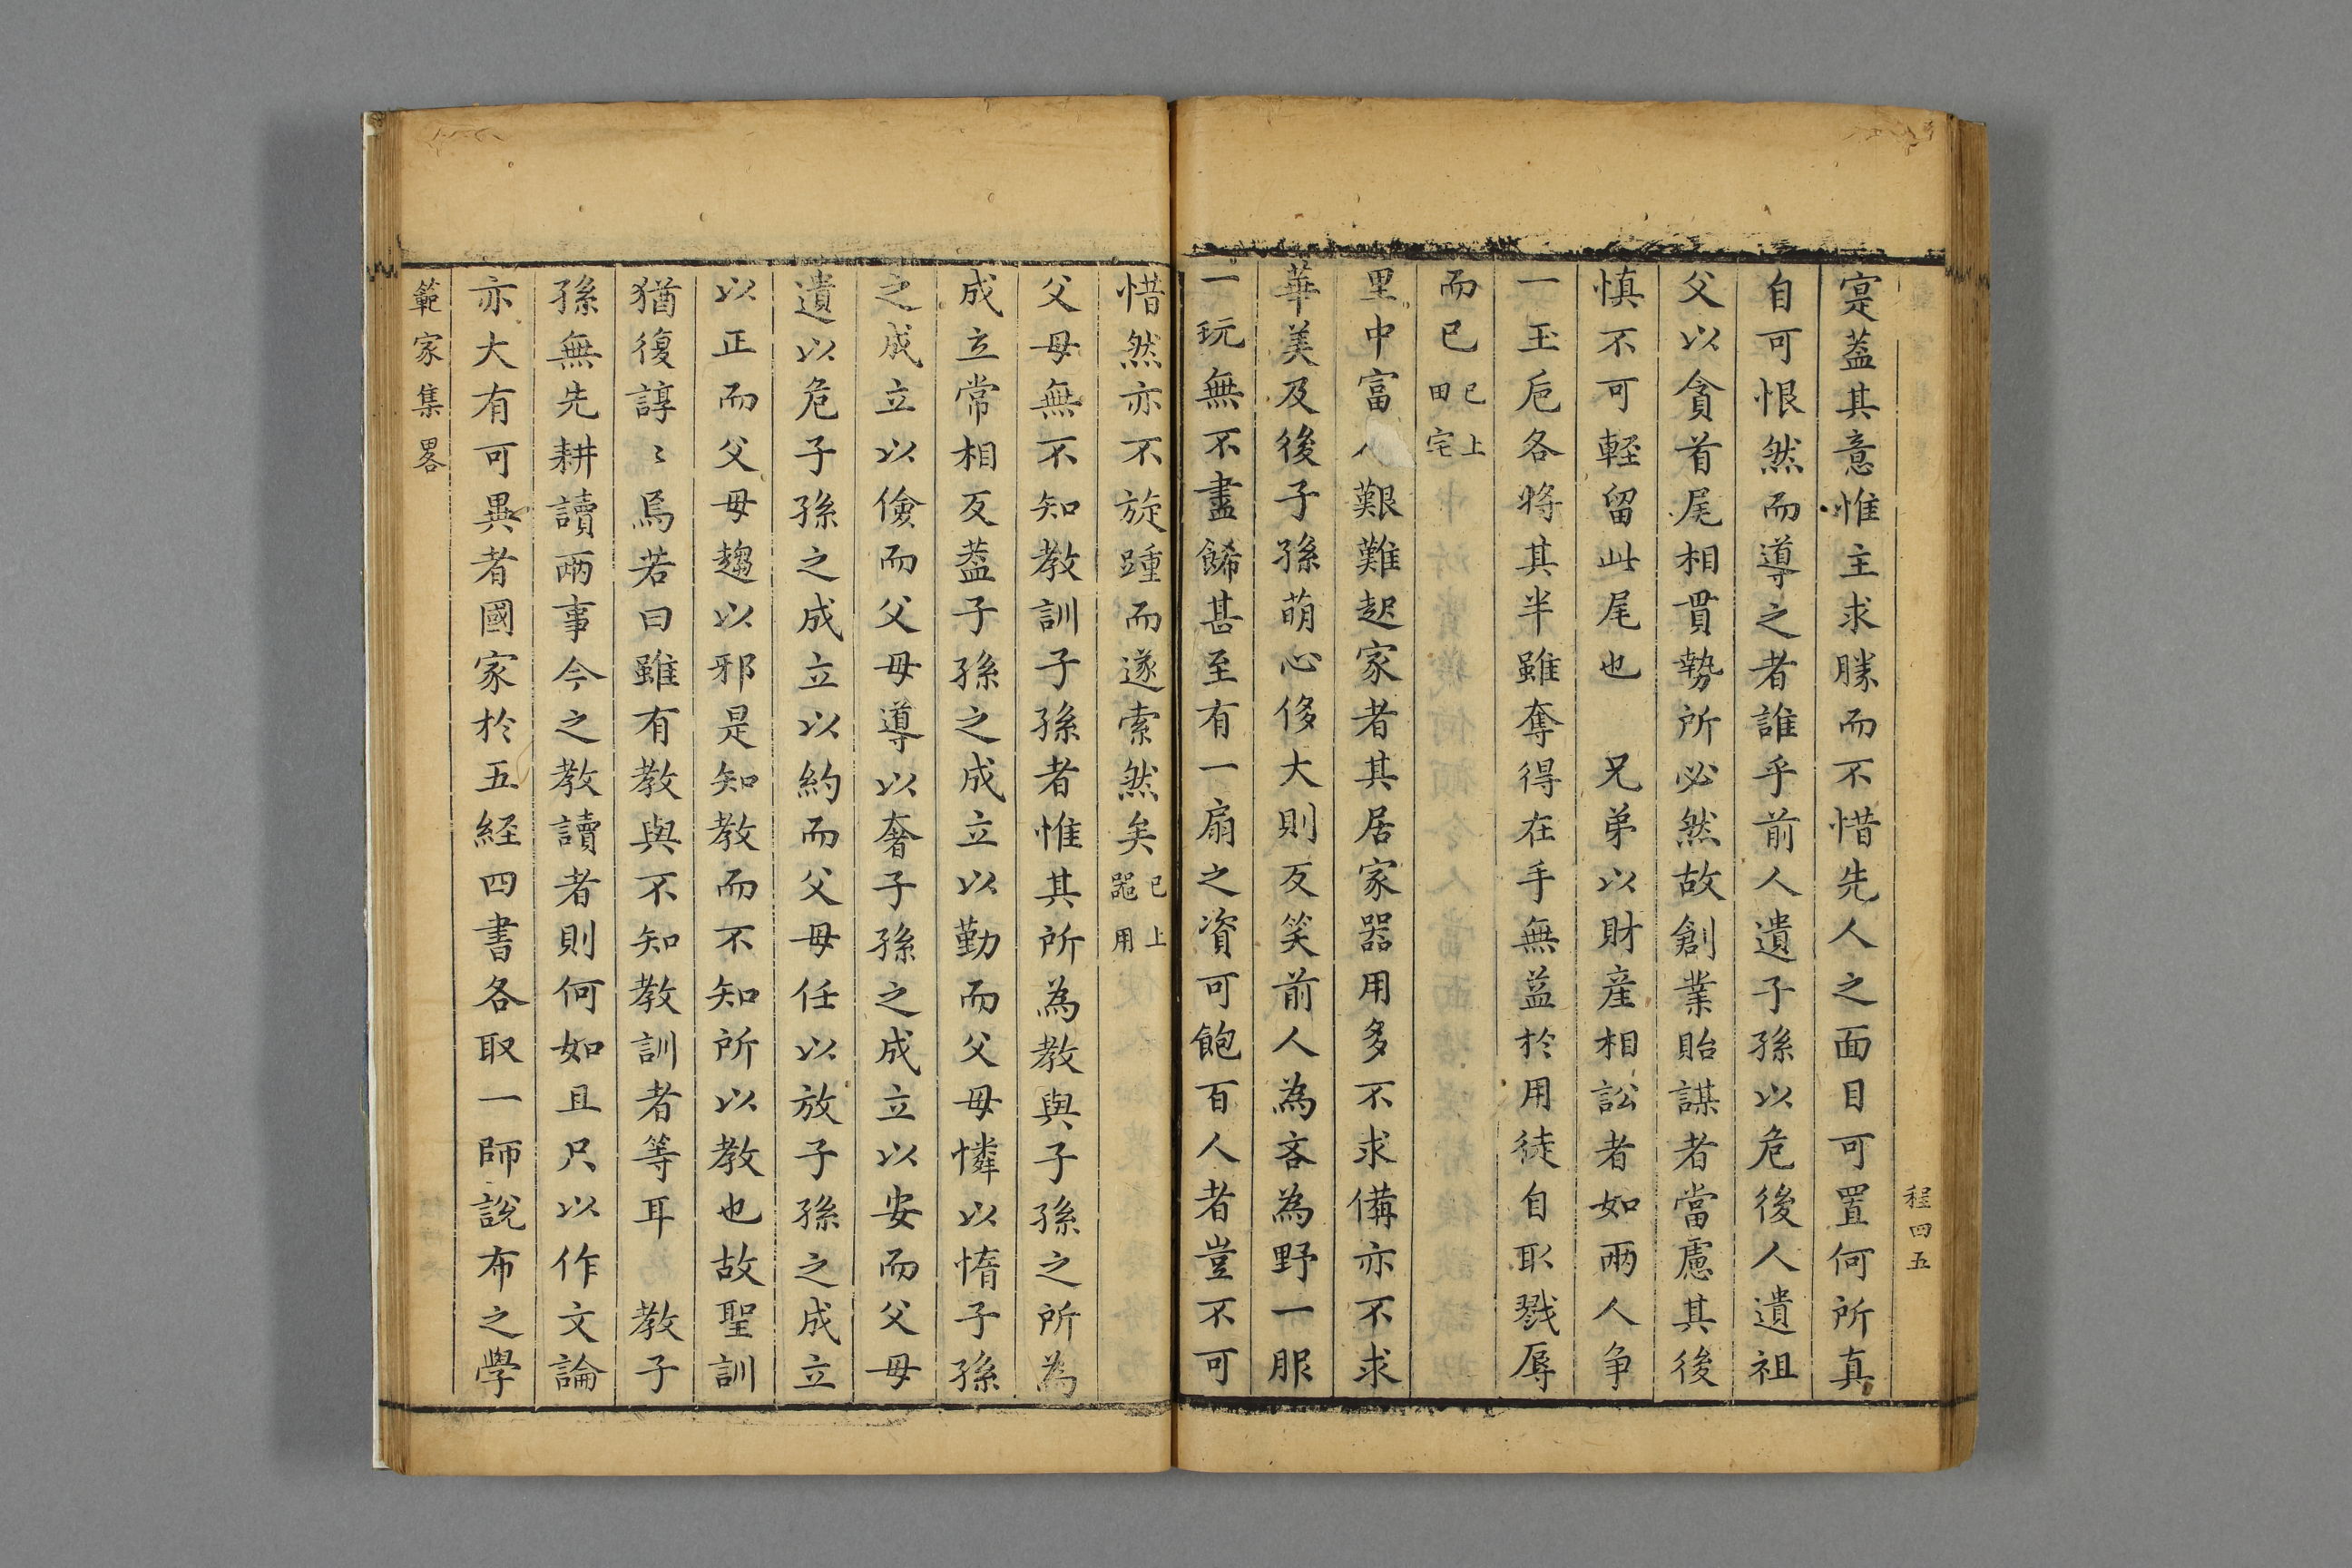 程四五
寔葢其意惟主求勝而不惜先人之面目可置何所真
自可恨然而導之者誰乎前人遺子孫以危後人遺祖
父以貪首尾相貫勢所必然故創業貽謀者當慮其後
慎不可輕留此尾也　兄弟以財產相訟者如兩人爭
一玉卮各將其半雖奪得在手無益於用徒自取戮辱
而已已上田宅
里中富人艱難起家者其居家器用多不求備亦不求
華美及後子孫萌心侈大則反笑前人為吝為野一服
一玩無不盡餙甚至有一扇之資可飽百人者豈不可
惜然亦不旋踵而遂索然矣已上器用
父母無不知教訓子孫者惟其所為教與子孫之所為
成立常相反葢子孫之成立以勤而父母憐以惰子孫
之成立以儉而父母導以奢子孫之成立以安而父母
遺以危子孫之成立以約而父母任以放子孫之成立
以正而父母趨以邪是知教而不知所以教也故聖訓
猶復諄〻焉若曰雖有教與不知教訓者等耳　教子
孫無先耕讀兩事今之教讀者則何如且只以作文論
亦大有可異者國家於五経四書各取一師說布之學
範家集畧